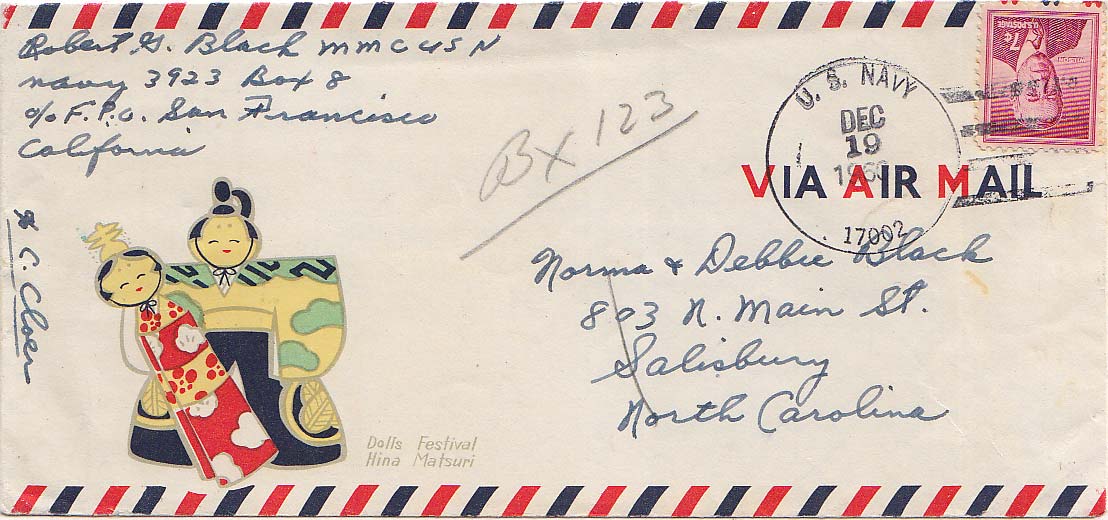 Robert G. Black MMC USN
Navy 3923 Box 8
c/o F.P.O. San Francisco
California
C. Cloer
BX 123
U. S. NAVY
DEC
19
17002
U.S. POSTAGE
7¢
VIA AIR MAIL
Norma & Debbie Black
803 N. Main St.
Salisbury
North Carolina
Dolls Festival
Hina Matsuri